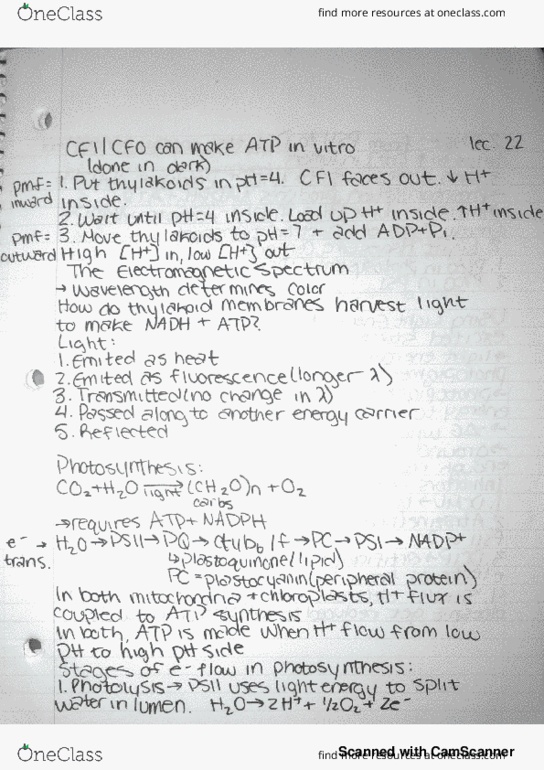 OneClass
find more resources at oneclass.com
lec. 22
CF1/CF0 can make ATP in vitro
(done in dark)
pmf= 1. Put thylakoids in pH=4. CF1 faces out. ↓ H+
inward inside.
2. Wait until pH=4 inside. Load up H+ inside. ↑H+ inside
pmf= 3. Move thylakoids to pH=7 + add ADP+Pi.
outward High [H+] in, low [H+] out
The Electromagnetic Spectrum
→ Wavelength determines color
How do thylakoid membranes harvest light
to make NADH + ATP?
Light:
1. Emited as heat
2. Emited as fluorescence (longer λ)
3. Transmitted (no change in λ)
4. Passed along to another energy carrier
5. Reflected
Photosynthesis:
CO2+H2O →light (CH2O)n + O2
carbs
→requires ATP+ NADPH
e- → H2O→PSII→PQ→cytb6/f→PC→PSI→NADP+
trans. ↳plastoquinone (lipid)
PC=plastocyanin (peripheral protein)
In both mitochondria + chloroplasts, H+ flux is
coupled to ATP synthesis
In both, ATP is made when H+ flow from low
pH to high pH side
Stages of e- flow in photosynthesis:
1. Photolysis → PSII uses light energy to split
water in lumen. H2O→2H+ + 1/2O2 + 2e-
OneClass
find more resources at oneclass.com
Scanned with CamScanner